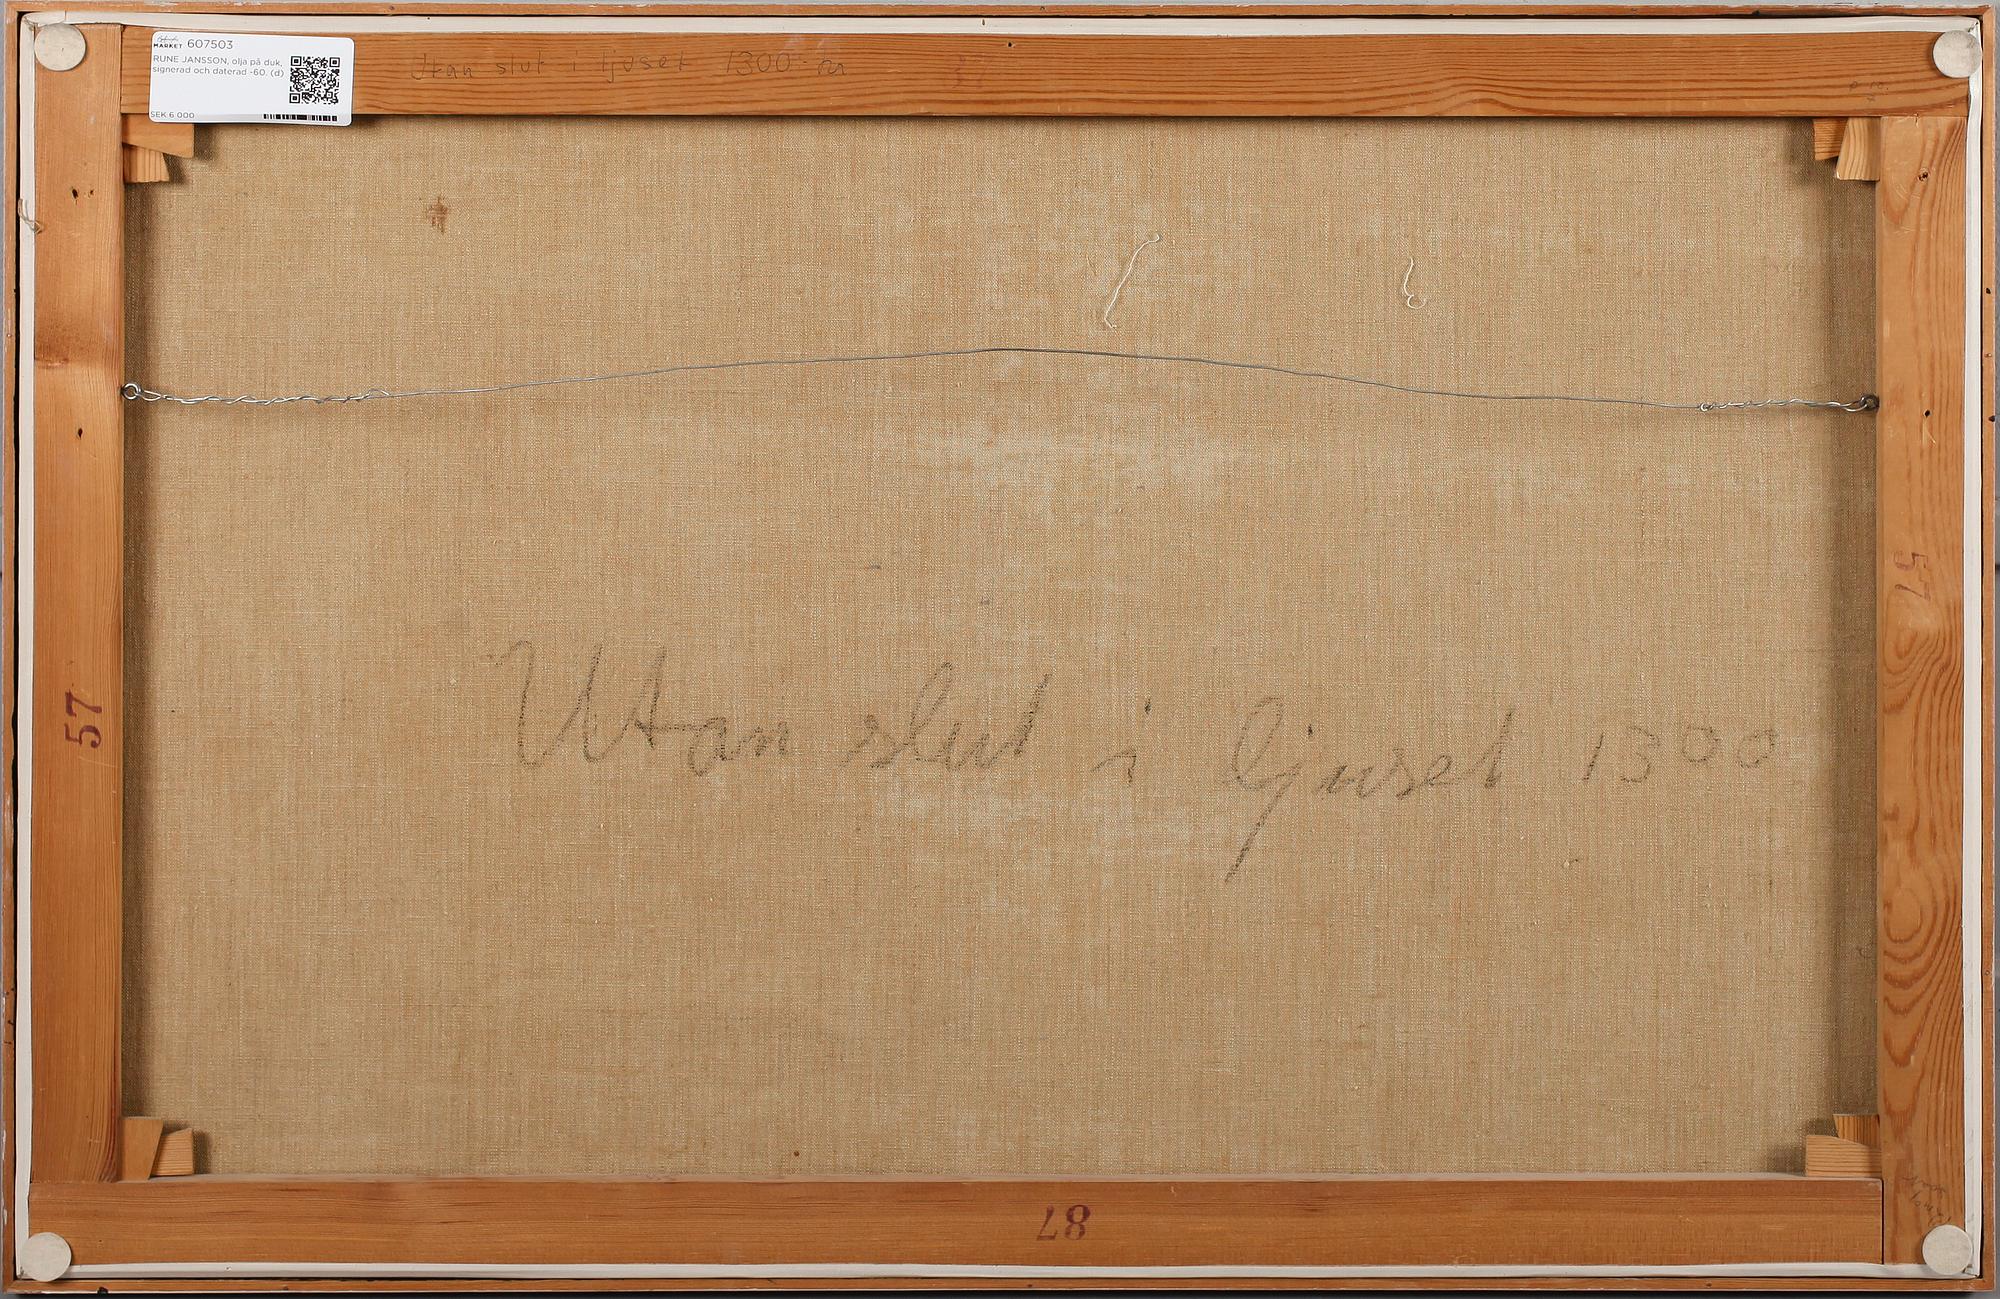 MARKET 607503
RUNE JANSSON, olja på duk,
signerad och daterad -60. (d)
SEK 6 000
Utan slut i ljuset 1300:- kr
57
57
Utan slut i ljuset 1300
87